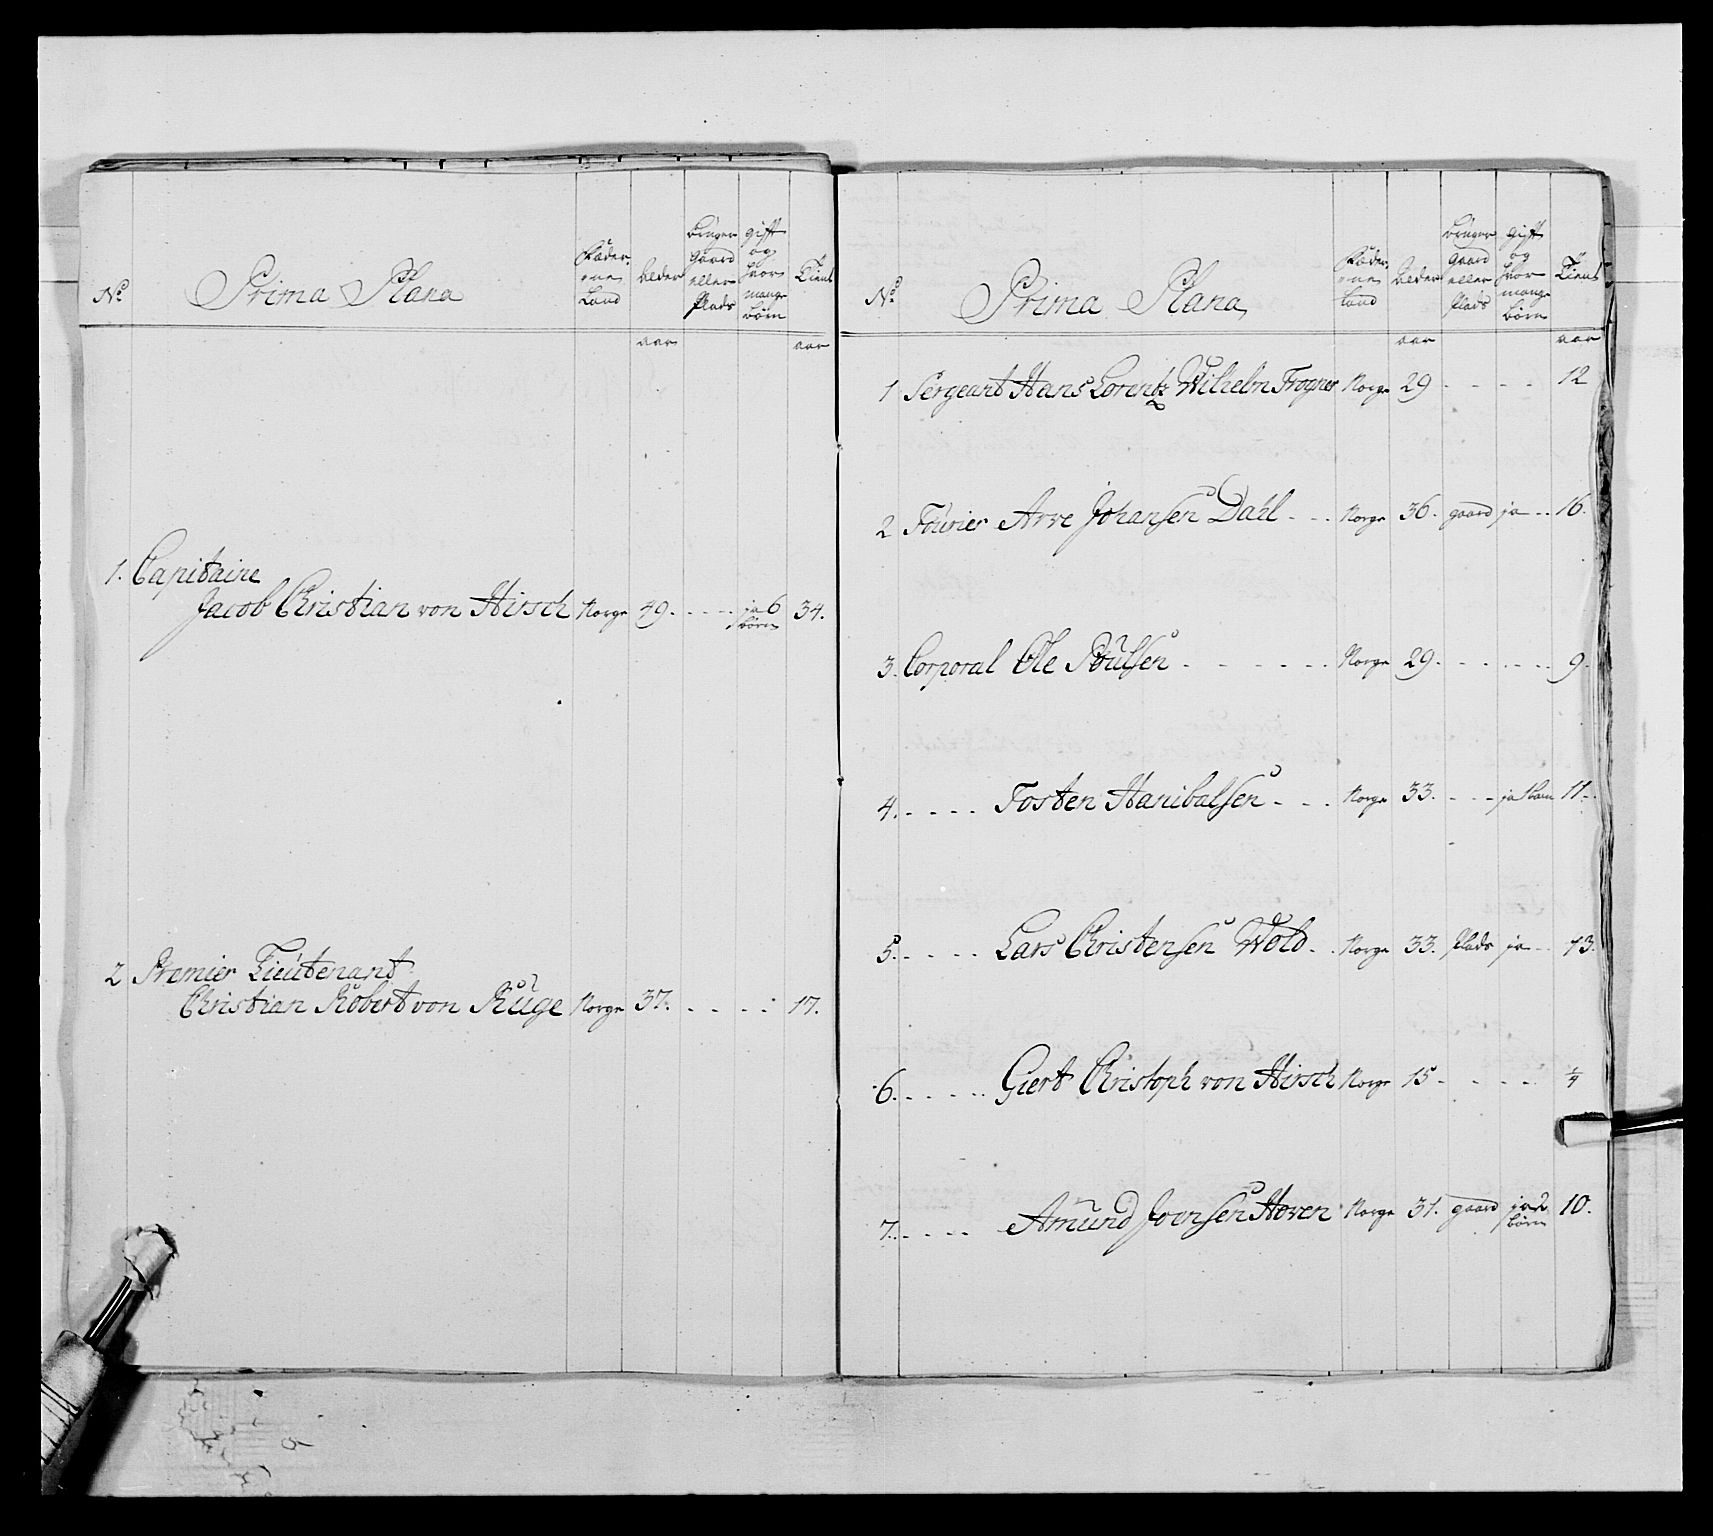 No Prima Plana Fæderne Land Alder bruger Gaard eller Plads gift og hvor mange børn Tient
aar aar
1. Capitaine
Jacob Christian von Hirsch Norge 49. ja 6 børn 34.
2 Premier Lieutenant
Christian Robert von Rüge Norge 37. 17.
No Prima Plana, Fæderne Land Alder bruger Gaard eller Plads Gift og hvor mange børn Tient
aar aar
1 Sergeant Hans Lorentz Wilhelm Frogner Norge 29 12
2 Fourier Arve Johansen Dahl Norge 36. gaard ja 16.
3. Corporal Ole Poulsen Norge 29. 9.
4. Tosten Hanibalsen Norge 33. ja 11
5. Lars Christensen Wold Norge 33. Plads ja 13.
6. Giert Christoph von Hirsch Norge 15 1/4
7. Amund Joensen Hoven Norge 31. gaard ja 2 børn 10.